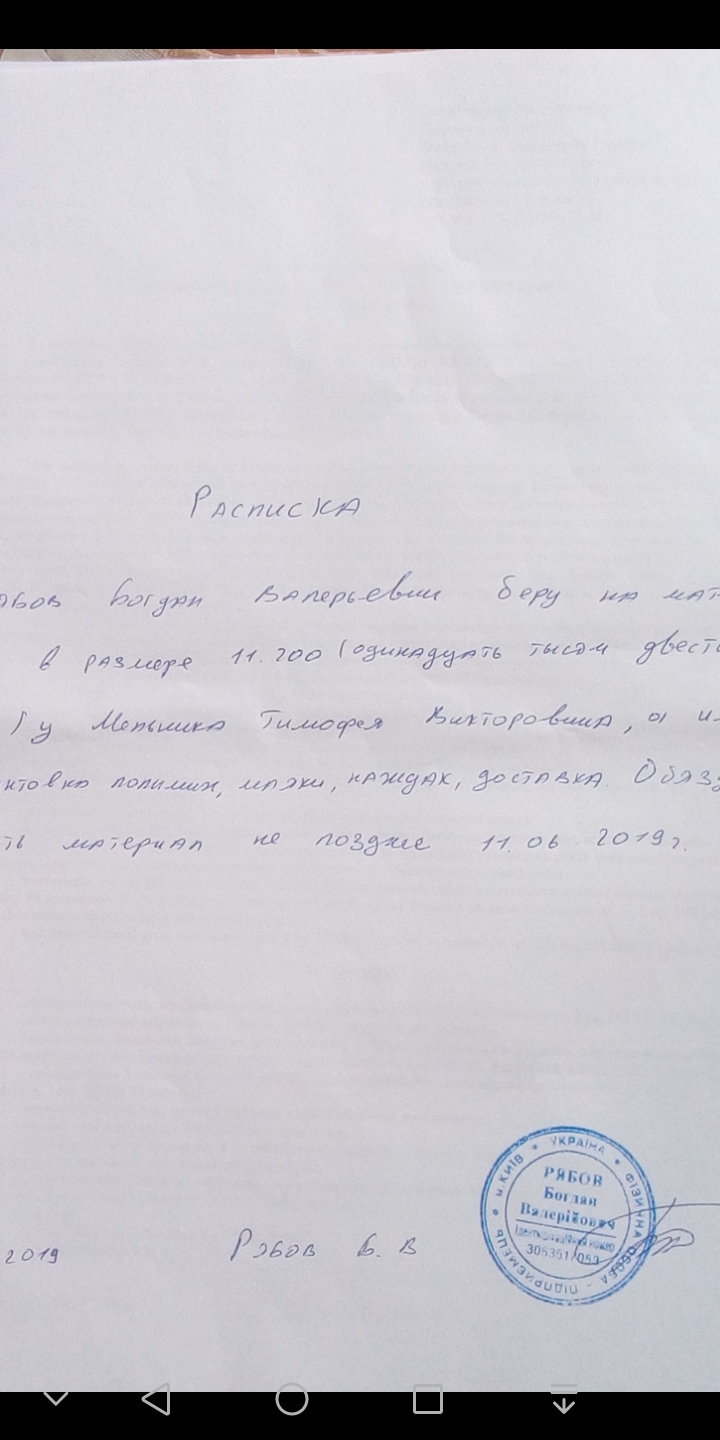 Расписка
Рябов Богдан Валерьевич беру на мат
в размере 11.200 (одинадцать тысяч двесті
) у Мельника Тимофея Викторовича, а и
нтовка полимих, маяки, наждак, доставка. Обязу
ть материал не позднее 11.06.2019г.
2019 Рябов Б. В
УКРАЇНА * ФІЗИЧНА ОСОБА - ПІДПРИЄМЕЦЬ * м.КИЇВ *
РЯБОВ
Богдан
Валерійович
Ідентифікаційний номер